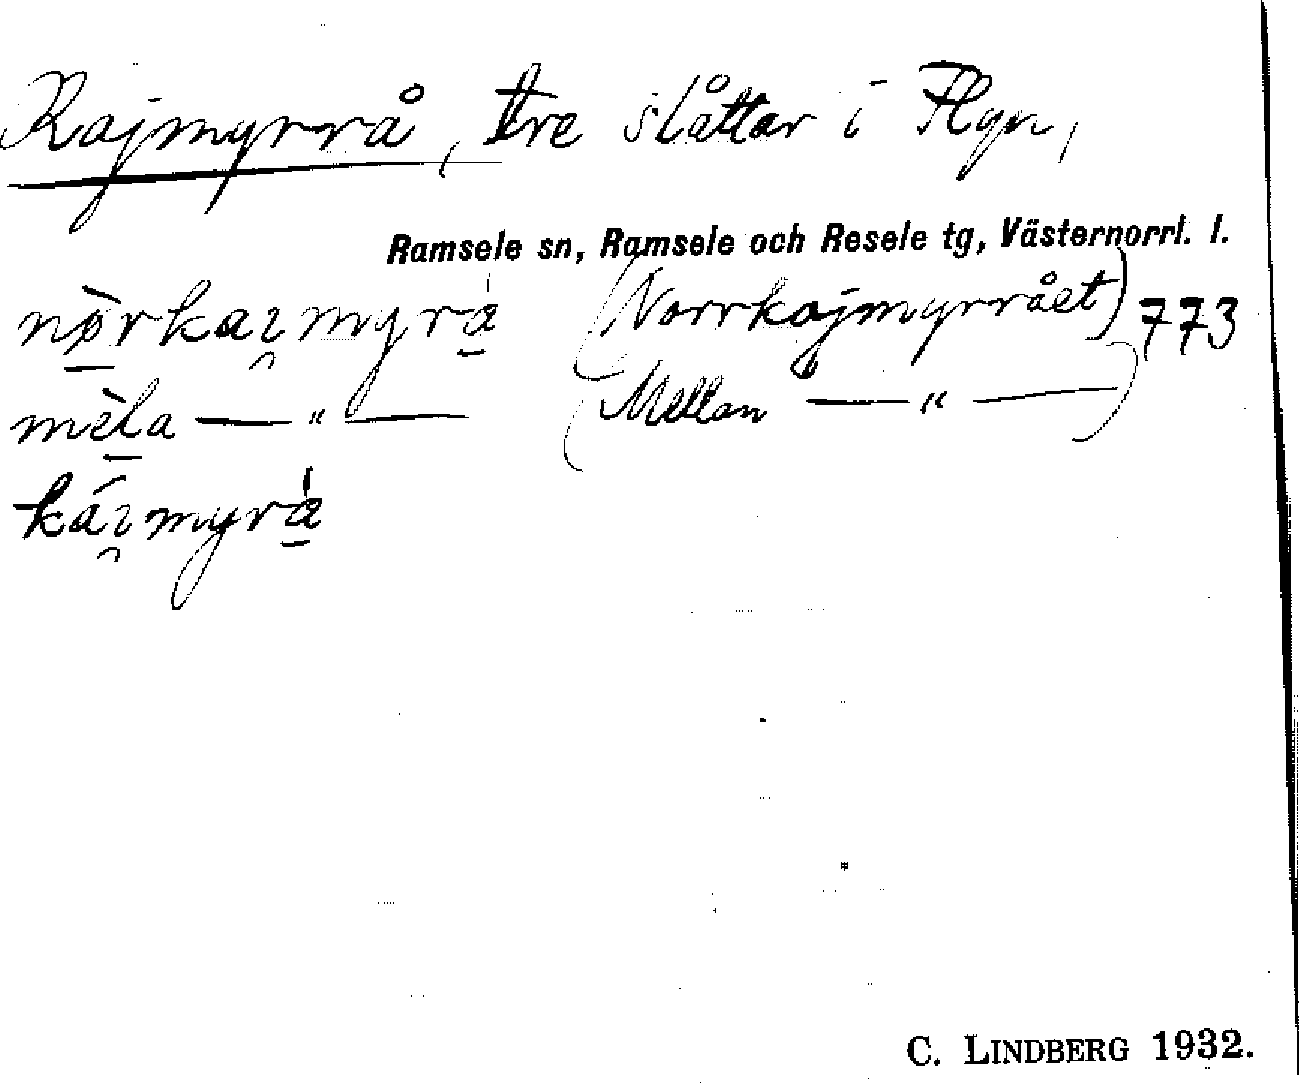 Kajmyrrå, tre slåttar i Flyn,
Ramsele sn, Ramsele och Resele tg, Västernorrl. l.
nòrkaɪ̯myrà (Norrkajmyrrået) 773
mèla — " — (Mellan — " —)
káɪ̯myrà
C. LINDBERG 1932.